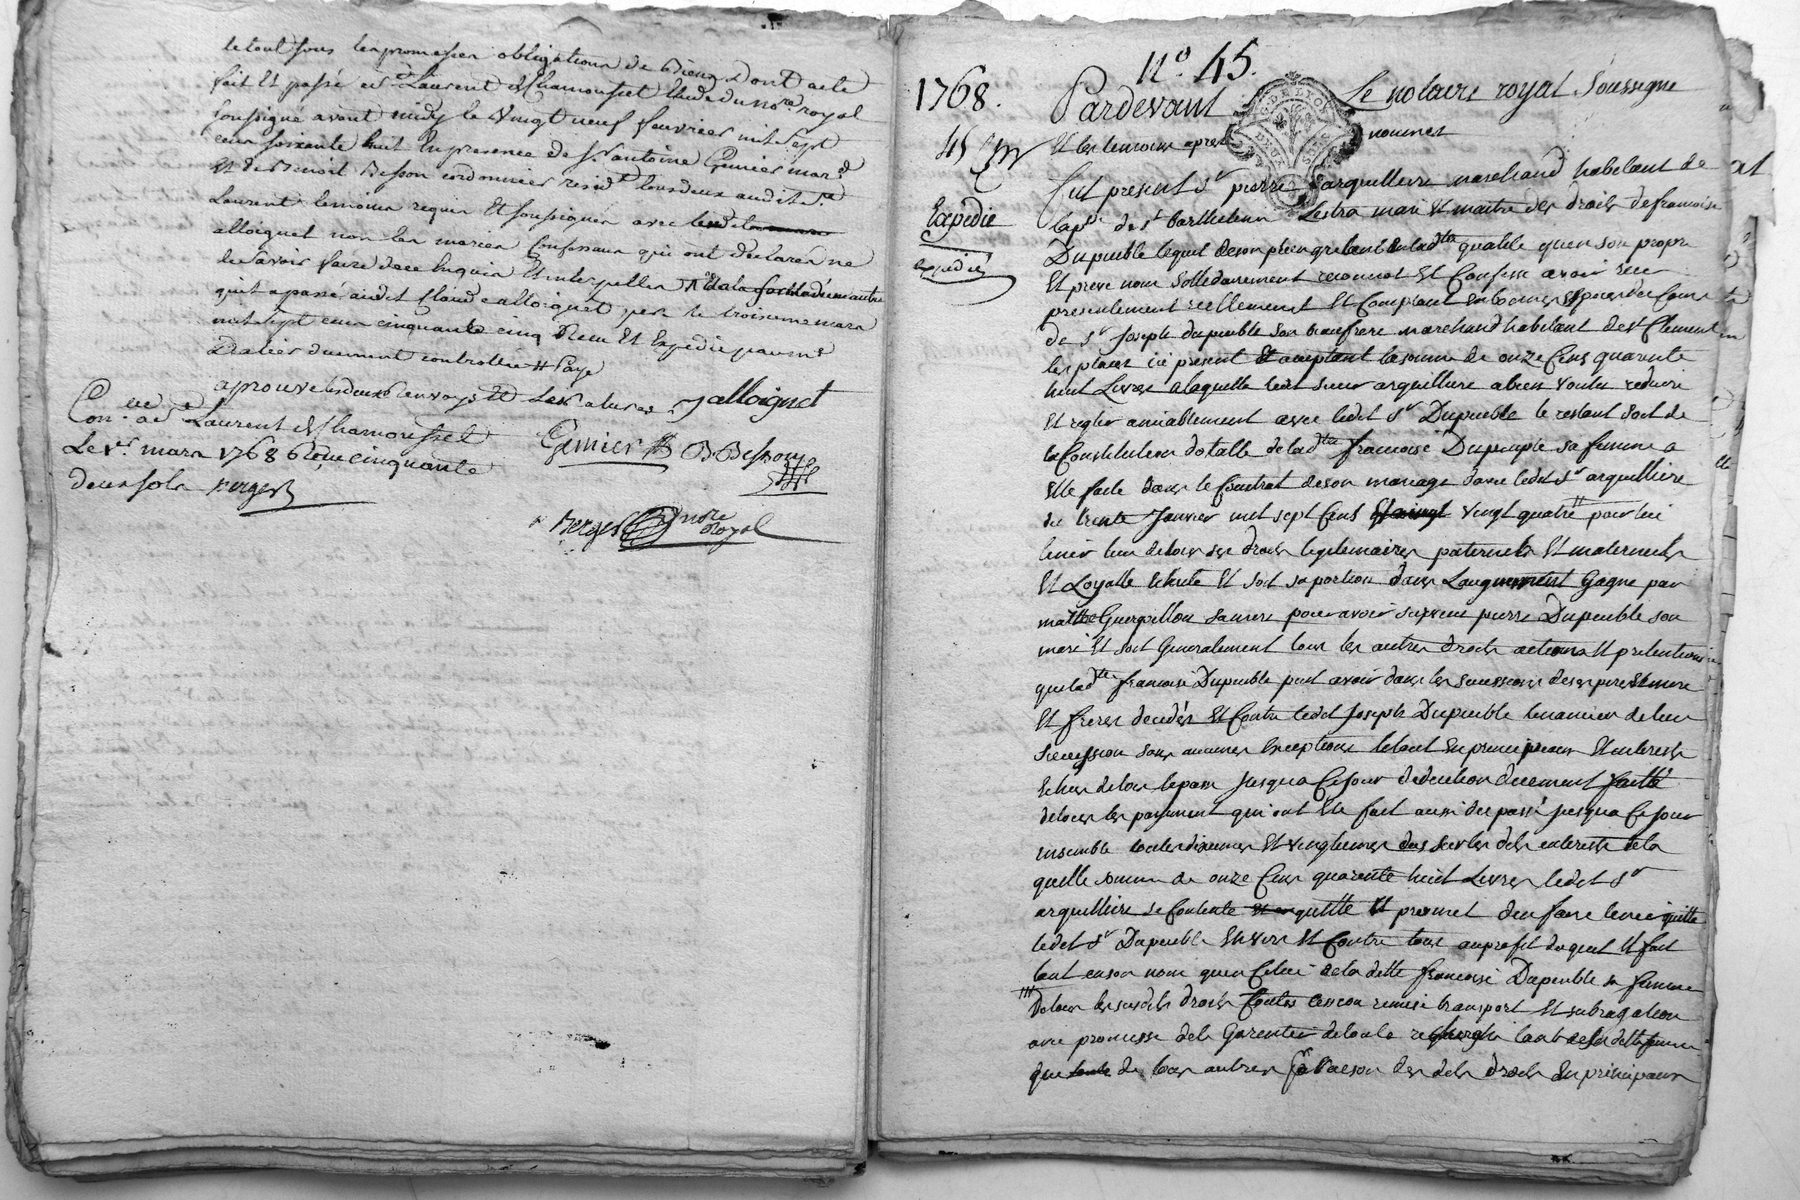 le tout sous les promesses obligations de biens dont acte
fait et passé a St Laurent de Chamousset etude du nore royal
soussigné avant midy le vingt neuf feuvrier mil sept
cens soixante huit en presence de sr antoine Gemier mard
et de Benoit Besson cordonnier residts tous deux audit St
Laurent temoins requis et soussignes avec led
alloignet non les mariés confessaux qui ont declaré ne
le savoir faire de ce enquis et interpellés
qu'il a passé audit Claude alloignet par le troisieme mars
mil sept cens cinquante cinq Reçu et Expedié par mr
Dalier duement controllée # Paye
aprouve les deux renvoys et les ratures Jalloignet
Conlée a St Laurent de Chamousset
Le 1er mars 1768 Reçu cinquante
deux sols Berger
Gemier B Besson
Berger nore Royal
No. 45.
1768.
45
Expedié
expedié
G. DE LYON
DEUX SOLS
Pardevant Le notaire royal soussigné
et les temoins apres nommes
fut present sr pierre arquilliere marchand habitant de
la psse de st Barthelemi Lestra mari et maitre des droits de francoise
Dupeuble lequel de son plein gré tant en lad.te qualité qu'en son propre
et privé nom sollidairement reconnoit et confesse avoir reçu
presentement reellement et comptant en bonnes especes de cours
de sr Joseph dupeuble son beaufrere marchand habitant de st Clement
les places ici present et acceptant la somme de onze cens quarente
huit Livres a laquelle ledit sieur arquilliere a bien voulu reduire
et regler amiablement avec ledit sr Dupeuble le restant soit de
la Constitution dotalle de lad.te francoise Dupeuple sa femme a
elle faite dans le Contrat de son mariage avec ledit sr arquilliere
du trente Janvier mil sept cens vingt quatre pour lui
tenir lieu de tous ses droits legitimaires paternels et maternels
et Loyalle echute et soit sa portion dans Laugument Gagné par
Guerpillon sa mere pour avoir survecu pierre Dupeuble son
mari et soit Generalement tous les autres droits actions et pretentions
que lad.te francoise Dupeuble peut avoir dans les successions de ses pere et mere
et freres decedés et contre ledit Joseph Dupeuble tenancier de leur
succession sans aucunes exceptions le tout en principaux et interests
echus de tout le passé jusqua ce jour deduction duement faitte
de tous les payement qui ont ete fait aussi du passé jusqua ce jour
ensemble les dixiemes et vingtiemes des dits interests de la
quelle somme de onze cens quarente huit Livres ledit sr
arquilliere se contente et quitte et promet d'en faire tenir quitte
ledit sr Dupeuble envers et contre tous au profit duquel il fait
tant en son nom qu'en celui de la dette francoise Dupeuble sa femme
De tous les susdits droits toutes cession remise transport et subrogation
avec promesse de la Garentir de toute recherche tant de la ditte femme
que de tous autres a raison des dits droits en principaux